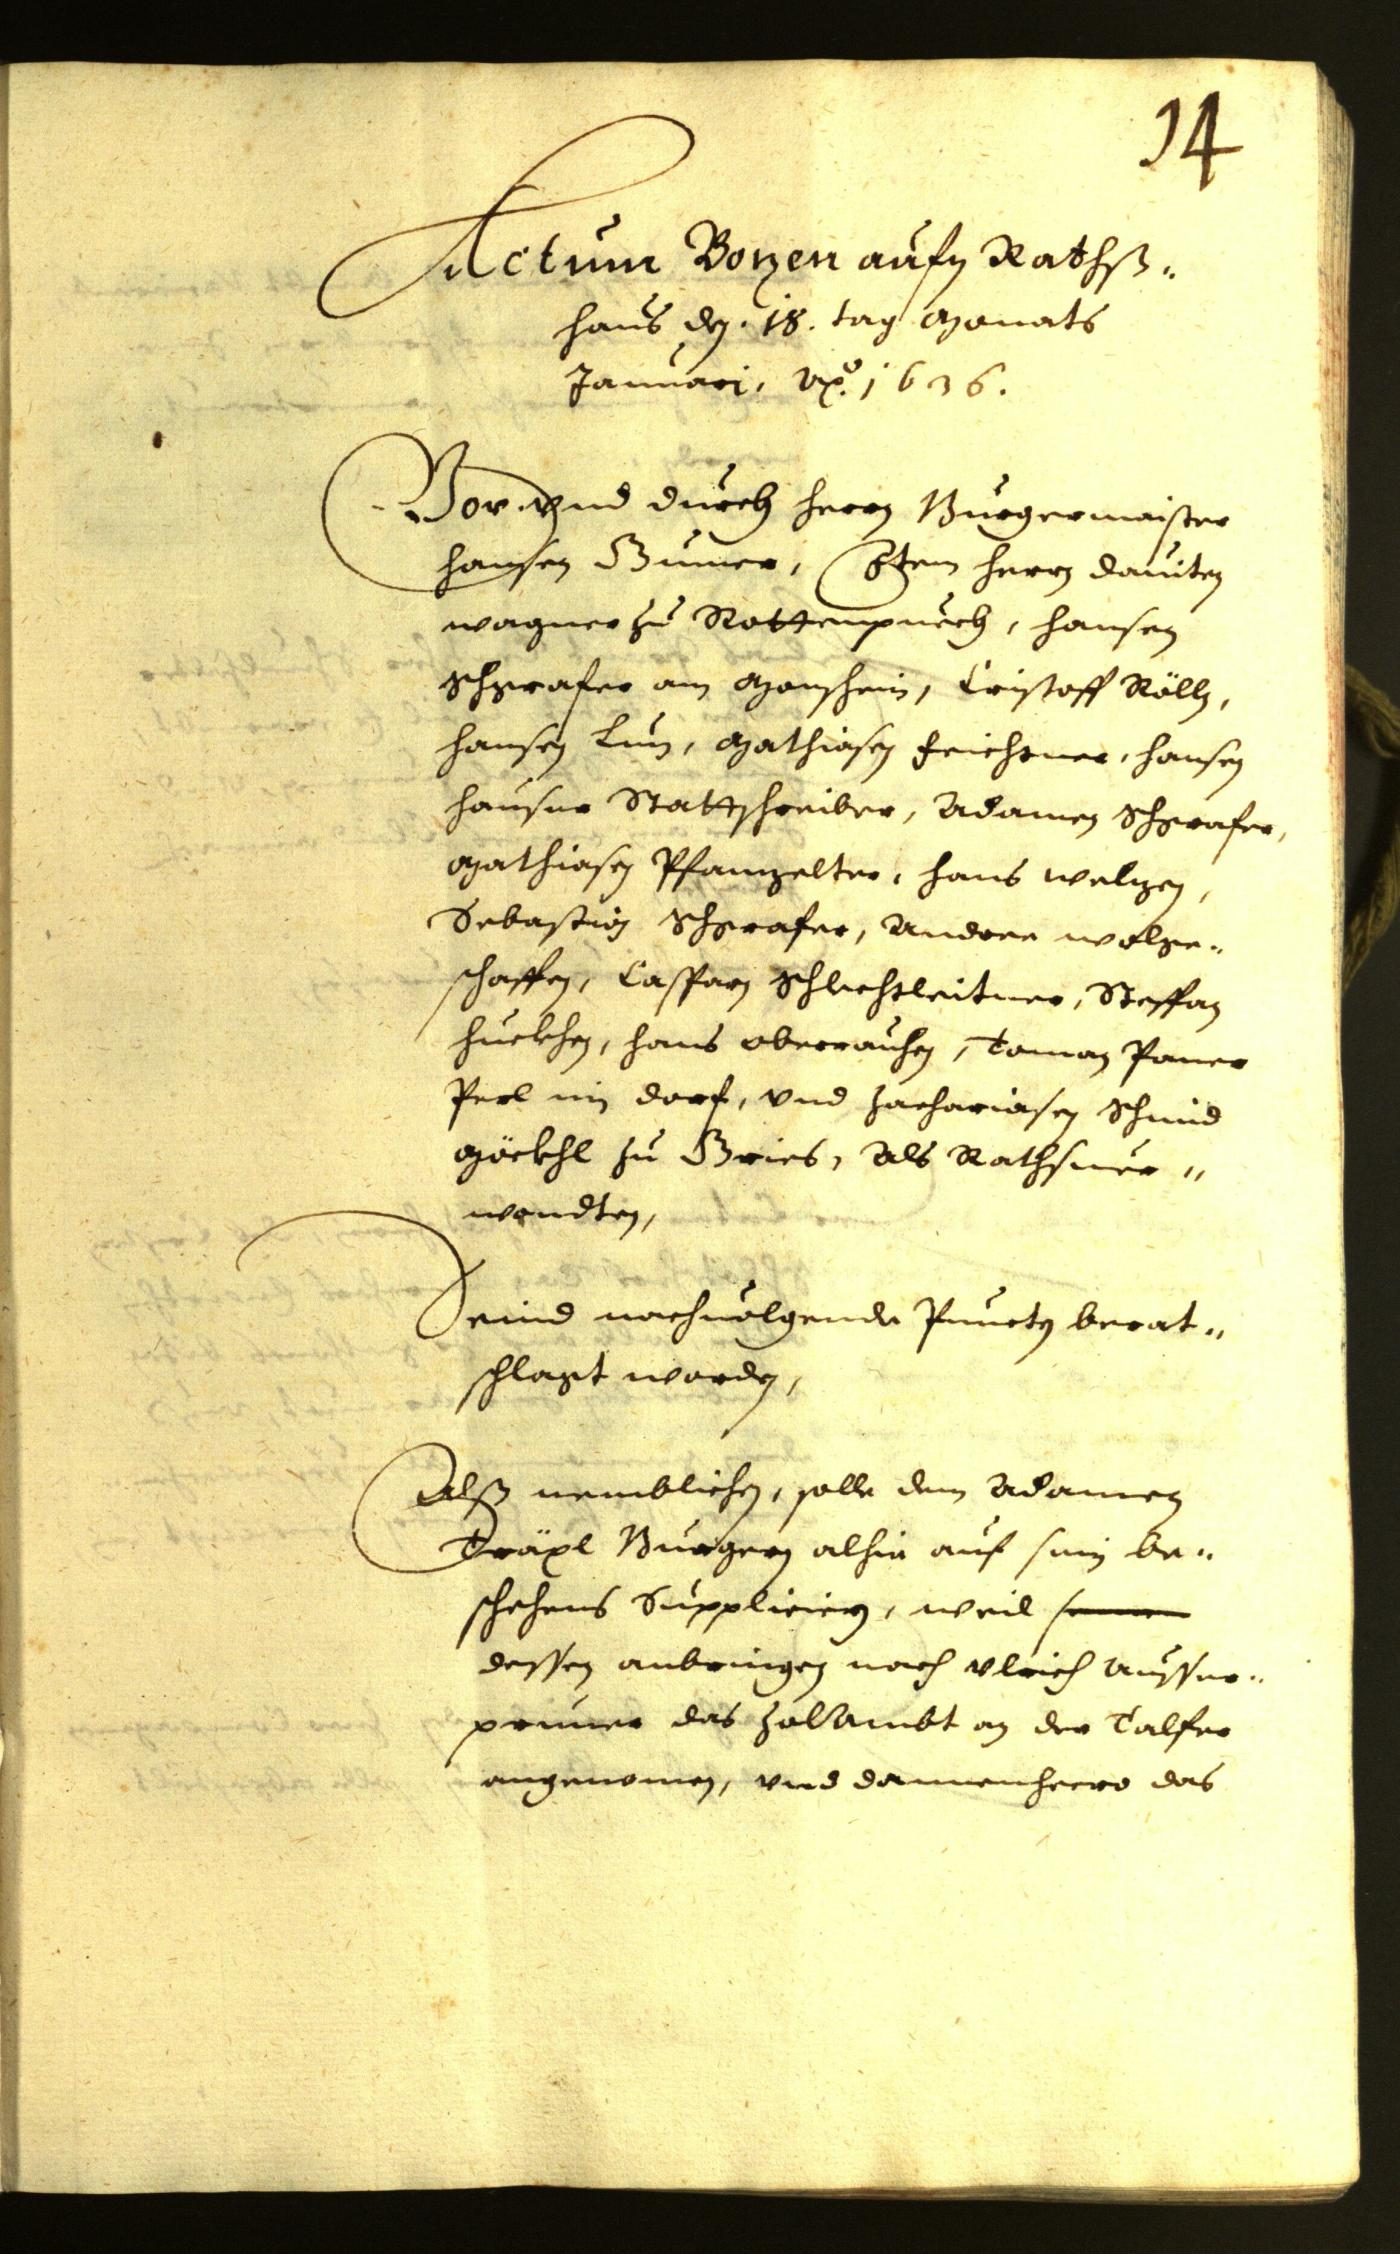 14
Actum Bozen aufn Rathß„
haus den. 18. tag Monats
Januari, Aõ. 1636.
Vor vnd durch herrn Burgermaister
hansen Gumer, Item herrn dauiten
wagner zu Rottenpuech, hansen
Schgrafer am Monschein, Cristoff Rölln,
hansen Lun, Mathiasen Feichtner, hansen
hauser Stattschreiber, Adamen Schgrafer,
Mathiasen Pfanzelter, hans welzen,
Sebastian Schgrafer, Andree wolge„
schaffen, Casparn Schlechtleitner, Steffan
huebhen, hans oberrauhen, Toman Paner
Perl im dorf, vnd Zachariasen Schmid
Möckhl zu Gries, Als Rathsuer„
wondten,
Seind nachuolgende Puncten berat„
schlagt worden,
Alß nemblichen, solle dem Adamen
Träpl Burgern alhie auf sein be„
schehens Supplicieren, weil
dessen anbringen nach Vlrich Ausser„
prunner das Zollambt an der Talfer
angenomen, vnd dannenhero das